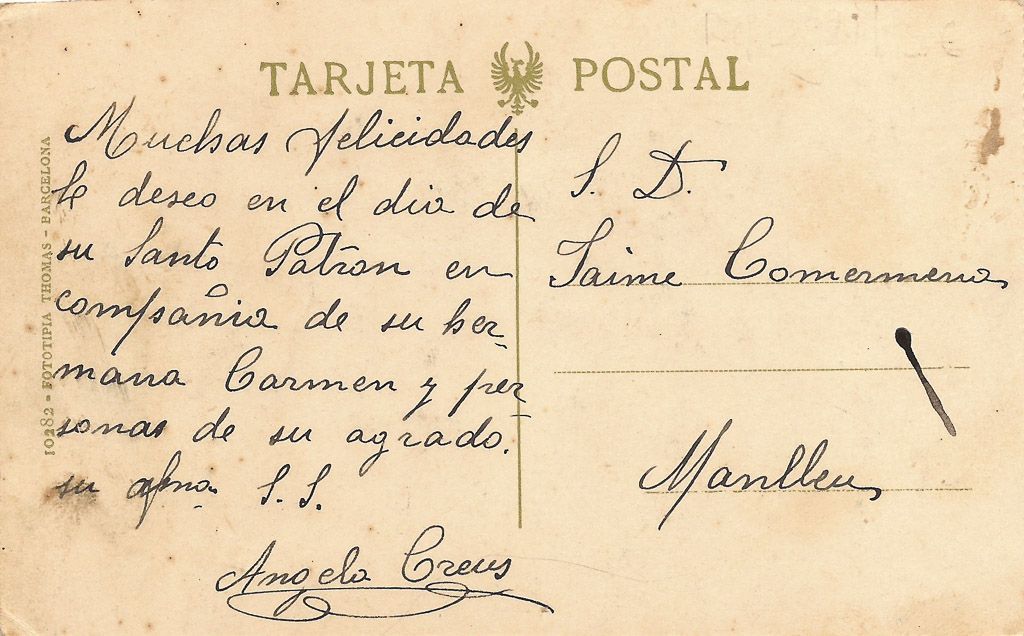 TARJETA POSTAL
Muchas felicidades
le deseo en el dia de
su Santo Patron en
compañia de su her-
mana Carmen y per-
sonas de su agrado.
su afma. S. S.
Angela Creus
S. D.
Jaime Comermena
Manlleu
10282 - FOTOTIPIA THOMAS - BARCELONA